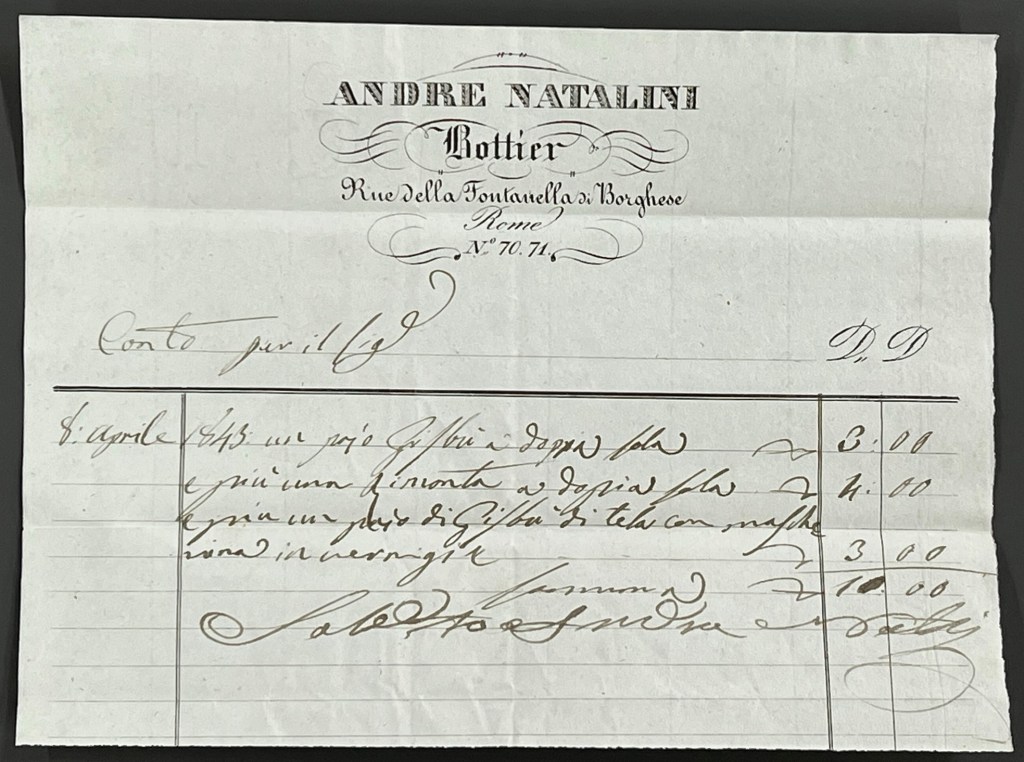 ANDRE NATALINI
Bottier
Rue della Fontanella di Borghese
Rome
N.º 70. 71.
Conto per il Sig D. D
8: Aprile 1843: un pajo Gisbù a doppia sola 3: 00
e più una Rimonta a doppia sola 4: 00
e più un pajo di Gisbù di tela con masche
rina in 3 00
somma 10. 00
Saldato Andrea